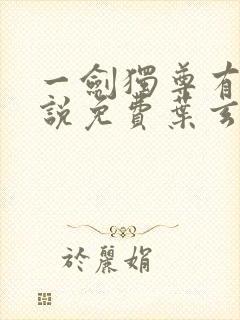 一劍獨尊有
說免費葉玄
於麗娟